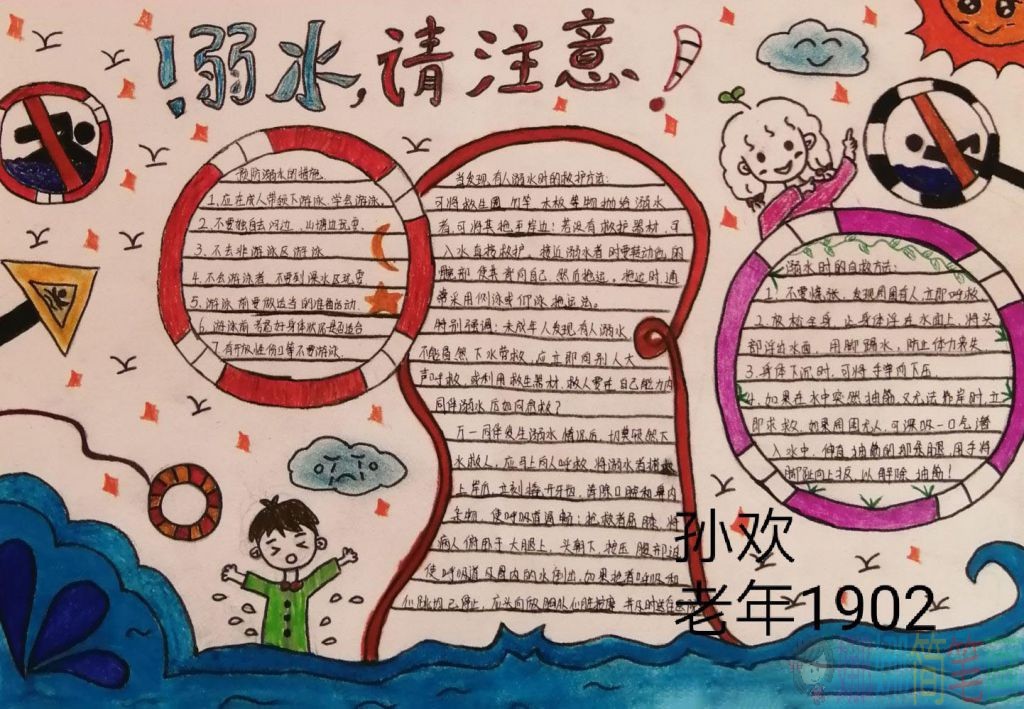 !溺水,请注意!
预防溺水的措施
1.应在成人带领下游泳.学会游泳.
2.不要独自去河边、山塘边玩耍.
3.不去非游泳区游泳
4.不会游泳者,不要到深水区玩耍
5.游泳前要做适当的准备活动
6.游泳前考虑好身体状况是否适合
7.有开放性伤口等不要游泳.
当发现有人溺水时的救护方法:
可将救生圈、竹竿、木板等物抛给溺水
者,可将其拖至岸边;若没有救护器材,可
入水直接救护。接近溺水者时要转动他的
髋部,使其背向自己,然后拖运。拖运时通
常采用侧泳或仰泳拖运法。
特别强调:未成年人发现有人溺水,
不能冒然下水营救,应立即向别人大
声呼救,或利用救生器材,救人要在自己能力内
同伴溺水后如何急救?
万一同伴发生溺水情况后,切莫轻然下
水救人,应马上向人呼救,将溺水者捞救
上岸后,立刻撬开牙齿,清除口腔和鼻内
杂物,使呼吸道通畅;抢救者屈膝,将
病人俯用于大腿上,头朝下,按压腹部迫
使呼吸道及胃内的水倒出.如果抢者呼吸和
心跳均已停止,应
溺水时的自救方法:
1.不要慌张,发现周围有人立即呼救
2.放松全身,让身体浮在水面上,将头
部浮出水面,用脚踢水,防止体力丧失
3.身体下沉时,可将手掌向下压
4.如果在水中突然抽筋,又无法靠岸时,立
即求救.如果周围无人,可深吸一口气潜
入水中,伸直抽筋的那条腿,用手将
脚趾向上扳,以解除抽筋!
孙欢
老年1902
简笔